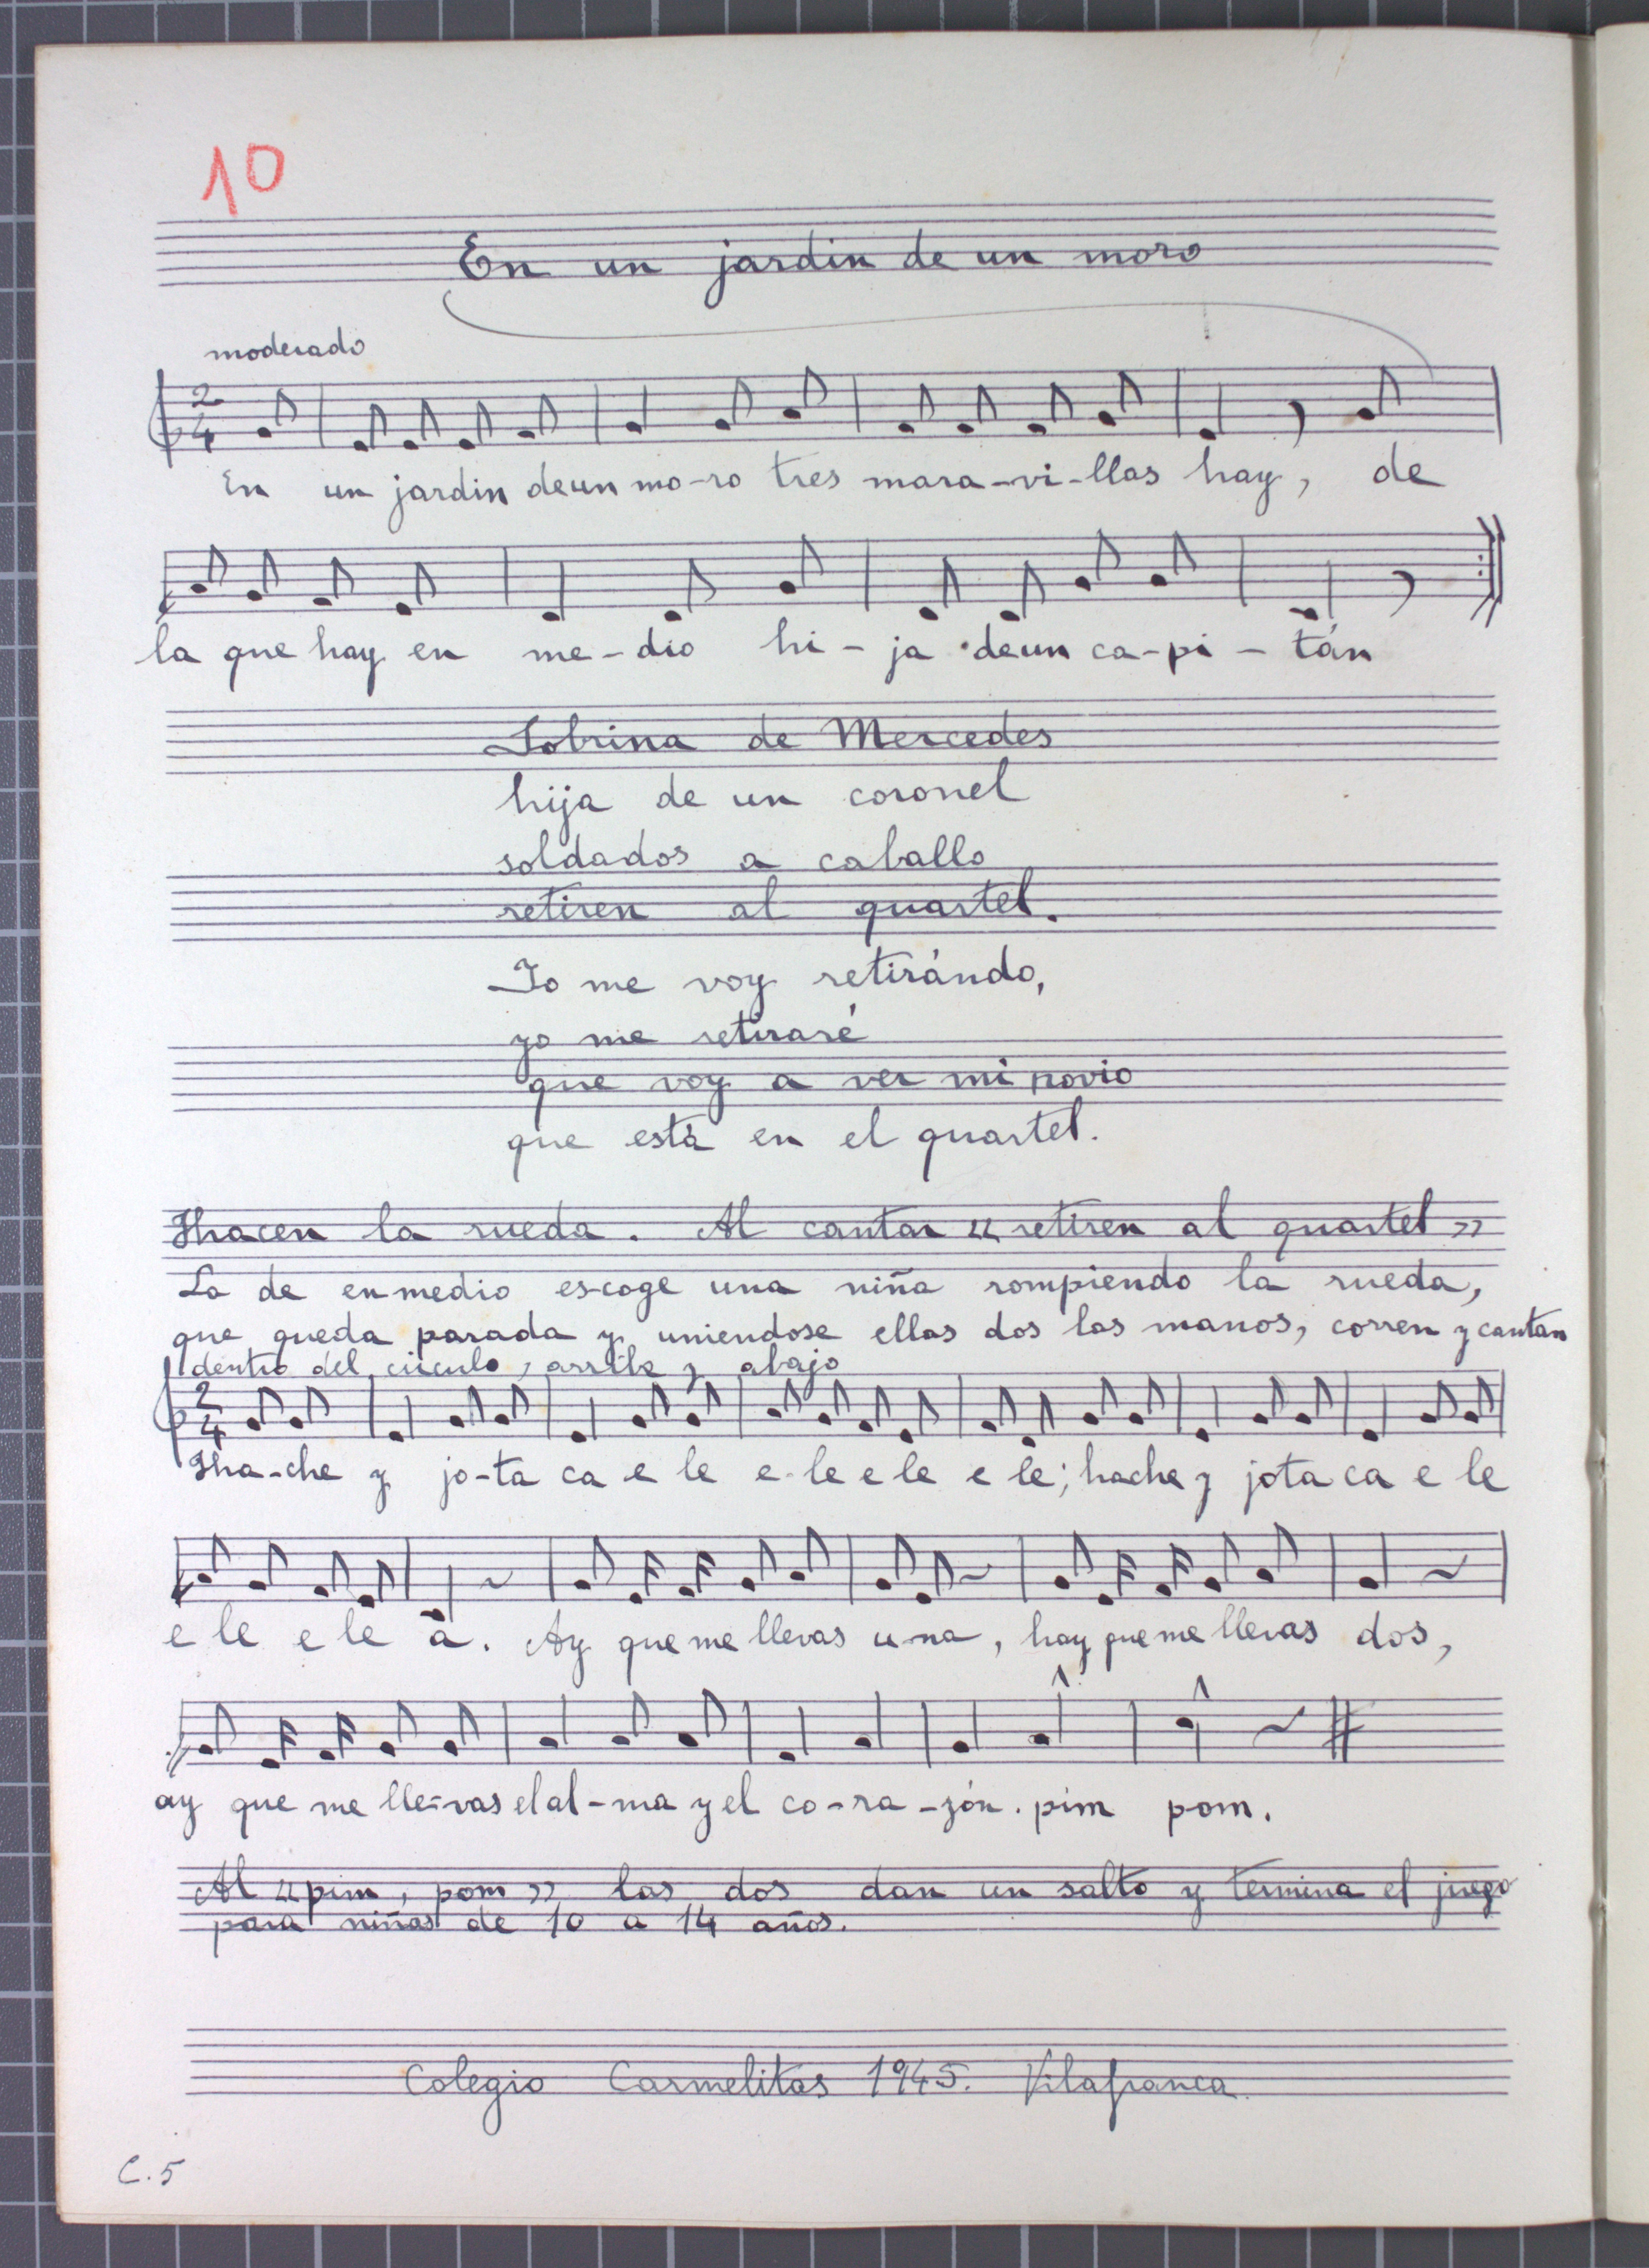 10
En un jardin de un moro
moderado
2
4
En un jardin deun mo-ro tres mara-vi-llas hay, de
la que hay en me-dio hi-ja deun ca-pi-tán
Sobrina de Mercedes
hija de un coronel
soldados a caballo
retiren al quartel.
Yo me voy retirándo,
yo me retiraré
que voy a ver mi novio
que está en el quartel.
Hacen la rueda. Al cantar "retiren al quartel"
La de enmedio escoge una niña rompiendo la rueda,
que queda parada y uniendose ellas dos las manos, corren y cantan
dentro del circulo, arriba y abajo
2
4
Ha-che y jo-ta ca e le e-le e le e le; hache y jota ca e le
e le e le a. Ay que me llevas u-na, hay que me llevas dos,
ay que me lle-vas el al-ma y el co-ra-zón. pim pom.
Al "pim, pom" las dos dan un salto y termina el juego
para niñas de 10 a 14 años.
Colegio Carmelitas 1945. Vilafranca.
C.5